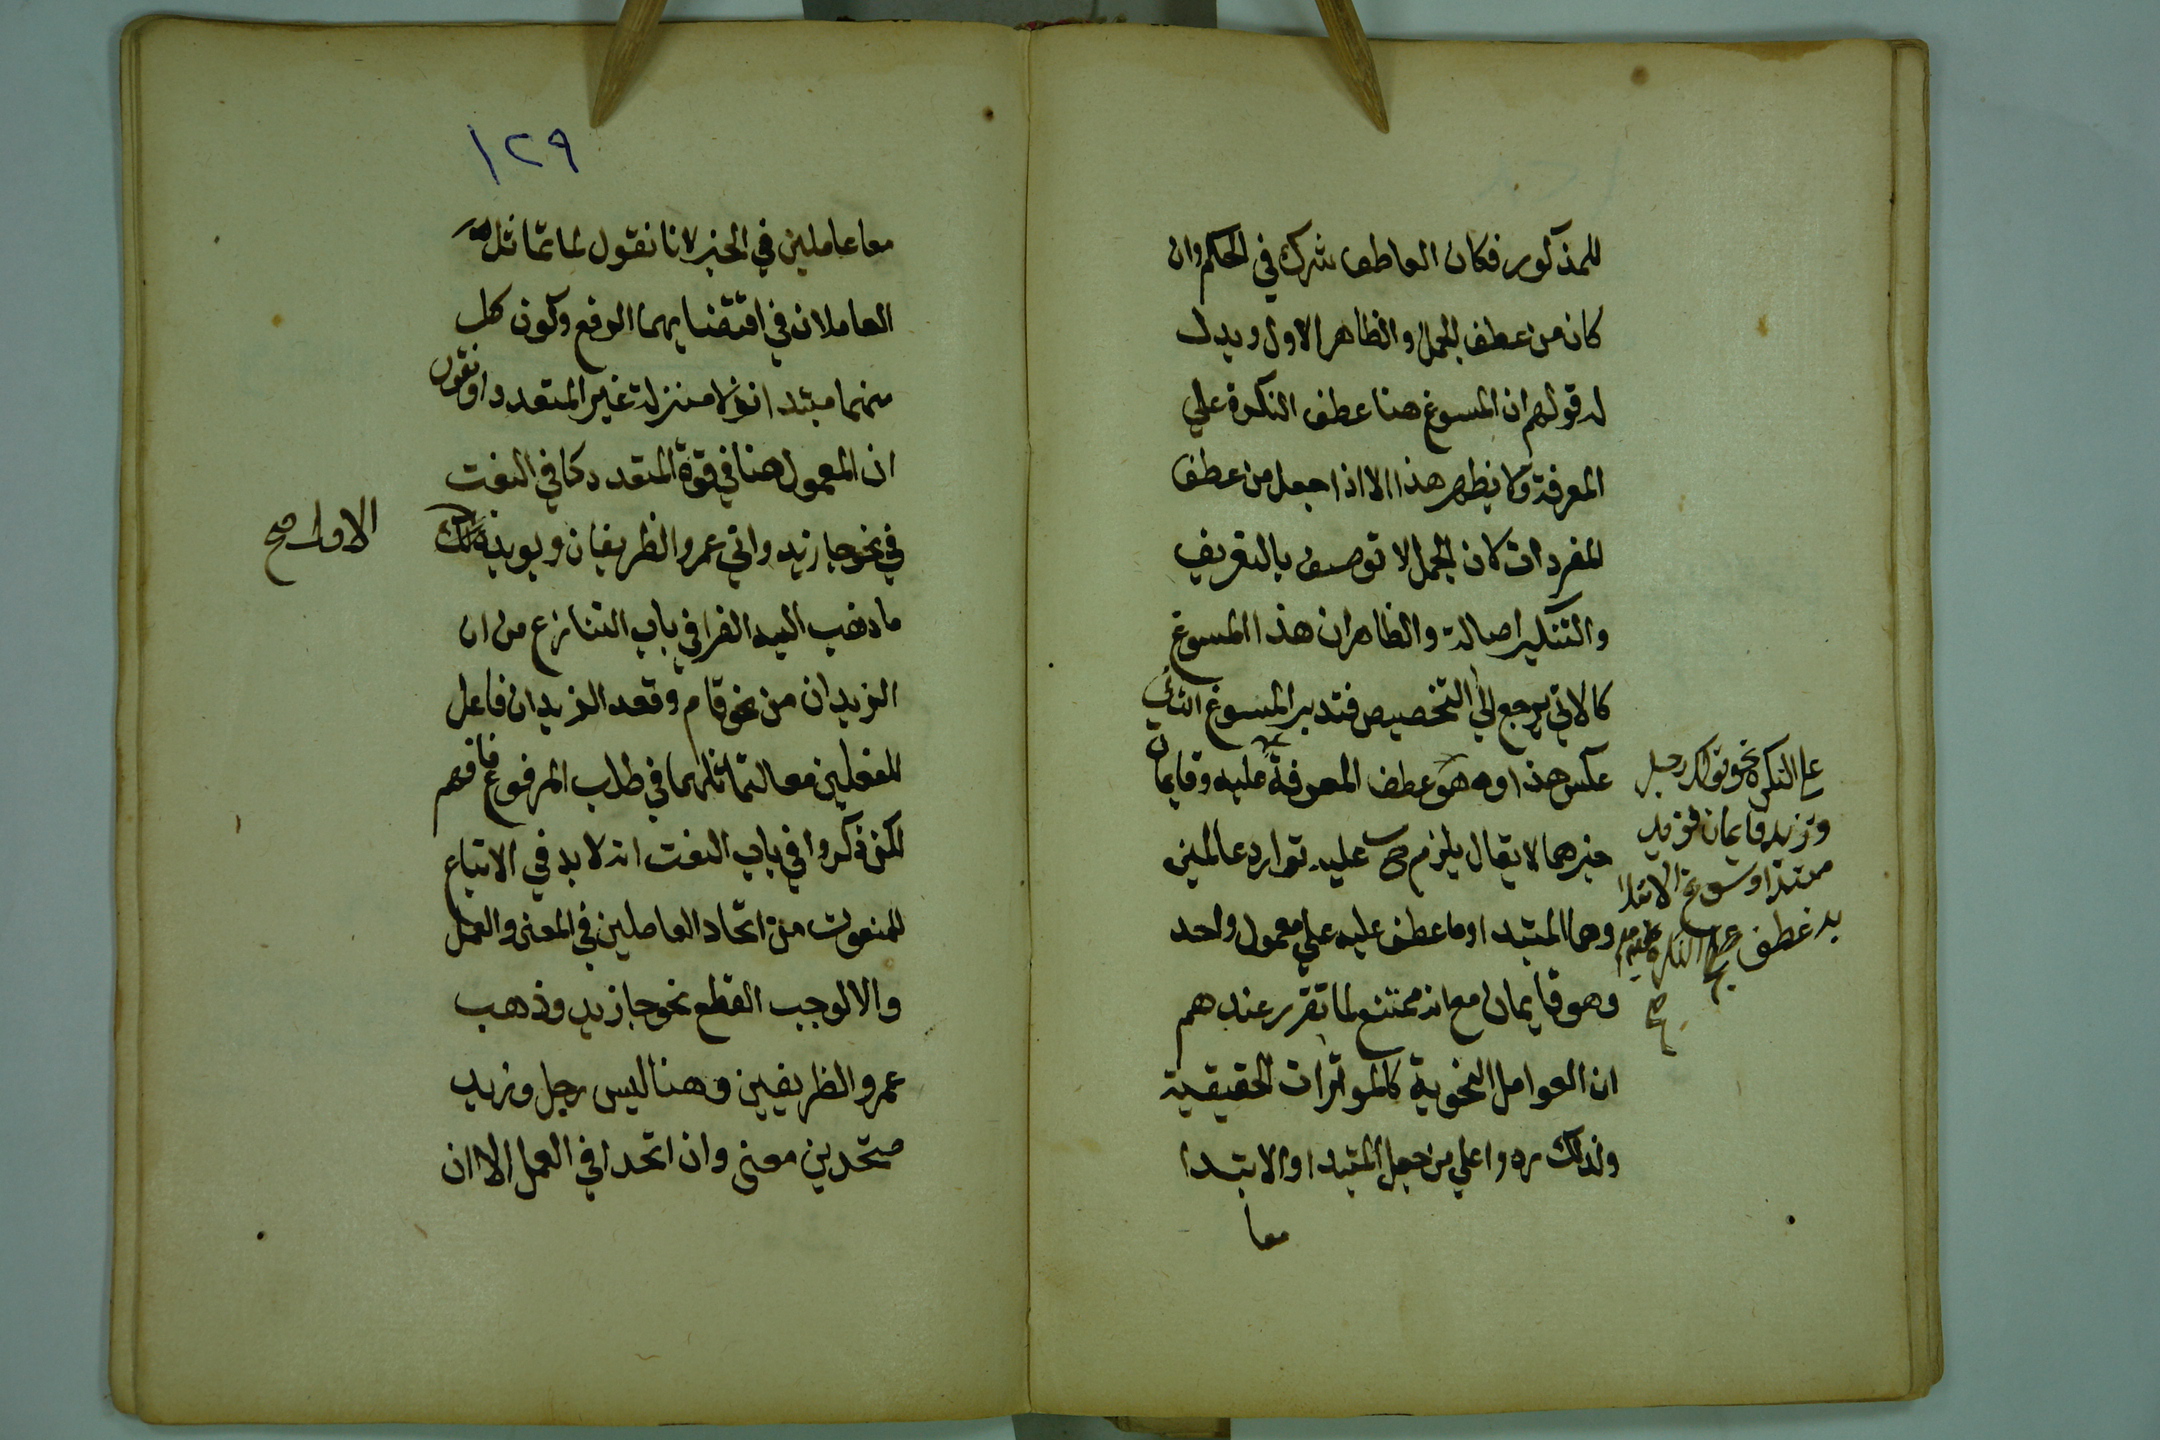 للمذكور فكان العاطف شرك في الحكم وان
كان من عطف الجمل والظاهر الاول ويدل
له قولهم ان المسوغ هنا عطف النكرة علي
المعرفة ولا يظهر هذا الا اذا جعل من عطف
المفردات كان الجمل لا توصف بالتعريف
والتنكير اصالة والظاهر ان هذا المسوغ
كالاتي يرجع الي التخصيص فتدبر المسوغ الثاني
عكس هذا وهو عطف المعرفة عليه وقايمان
خبرهما لا يقال يلزم عليه توارد عاملين
وهما المبتدا وما عطف عليه علي معمول واحد
وهو قايمان مع انه ممتنع لما تقرر عندهم
ان العوامل النحوية كالموثرات الحقيقية
ولذلك ردوا علي من جعل المبتدا والابتدا
معا
علي النكرة نحو رجل
وزيد قايمان فزيد
مبتدا وسوغ الابتدا
به عطف النكرة
صح
١٢٩
معا عاملين في الخبر لانا نقول لما تماثل
العاملان في اقتضايهما الرفع وكون كل
منهما مبتدا نزلا منزلة غير المتعدد او نقول
ان المعمول هنا في قوة المتعدد كما في النعت
في نحو جا زيد واتي عمرو الظريفان ويويد
الاول صح
ما ذهب اليه الفرا في باب التنازع من ان
الزيدان من نحو قام وقعد الزيدان فاعل
للفعلين معا لتماثلهما في طلب المرفوع فافهم
لكن ذكروا في باب النعت انه لا بد في الاتباع
للمنعوت من اتحاد العاملين في المعني والعمل
والا لوجب القطع نحو جا زيد وذهب
عمرو الظريفين وهنا ليس رجل وزيد
متحدين معني وان اتحدا في العمل الا ان